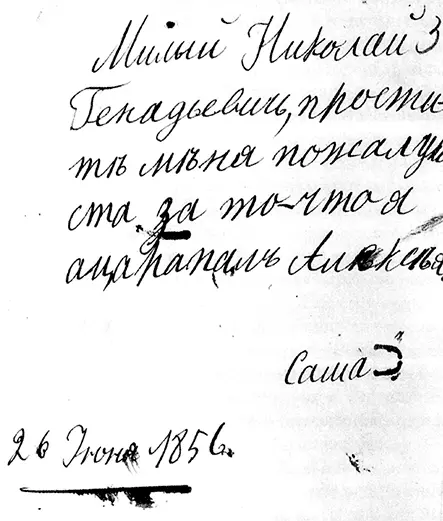 Милый Николай З
Генадьевичь, прости
тѣ мѣня пожалуй
ста за то-что я
ацарапалъ Алѣксѣя
Саша
26 Іюня 1856.